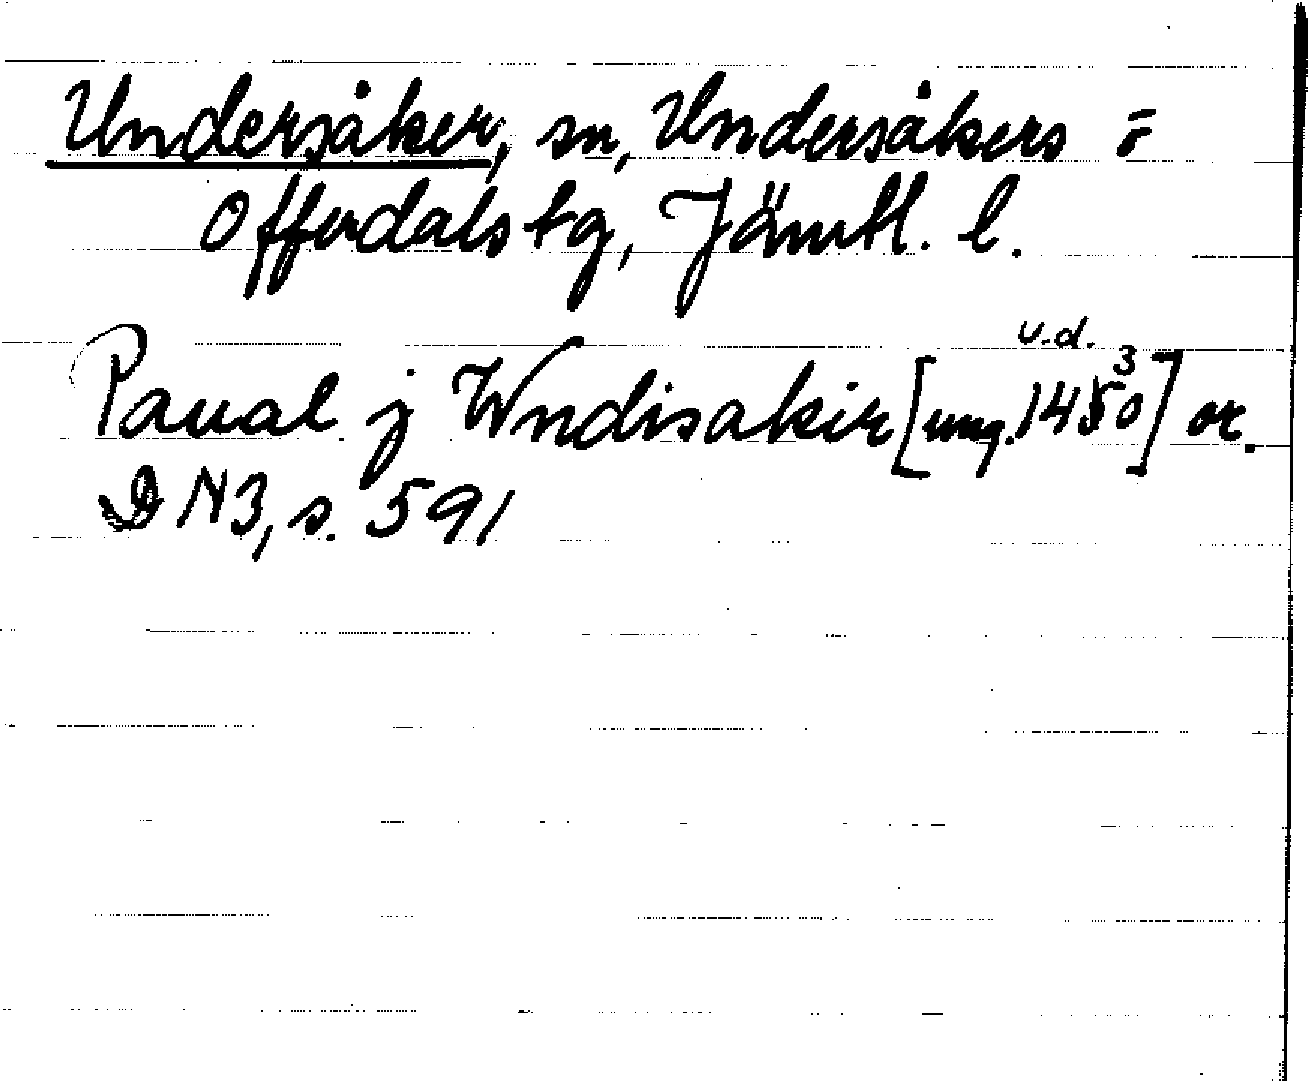 Undersåker, sn, Undersåkers o
Offerdals tg, Jämtl. l.
u.d.
Paual j Wndisakir [umg. 1430] or.
DN3, s. 591